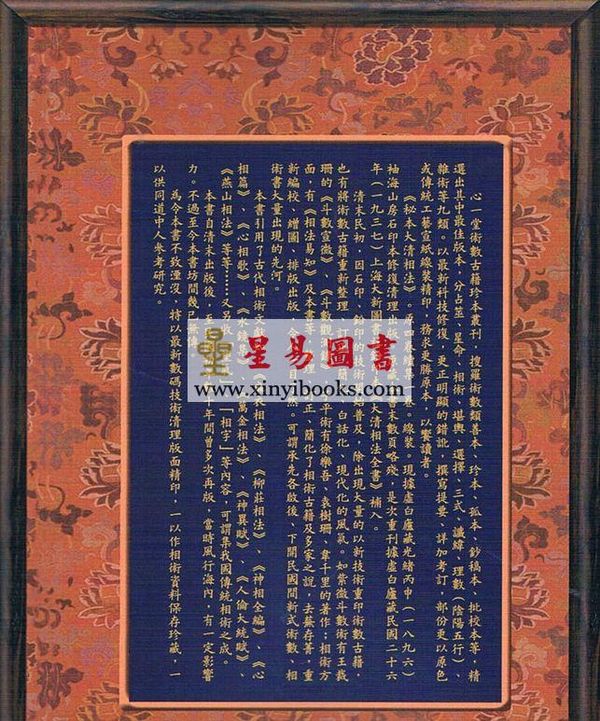 心一堂術數古籍珍本叢刊,搜羅術數類善本、珍本、孤本、鈔稿本、批校本等,精
選出其中最佳版本,分占筮、星命、相術、堪輿、選擇、三式、讖緯、理數(陰陽五行)、
雜術等九類。以最新科技修復、更正明顯的錯訛,撰寫提要、詳加考訂,部份更以原色
或傳統工藝宣紙線裝精印,務求更勝原本,以饗讀者。
《秘本大清相法》。原四
線裝。現據虛白廬藏光緒丙申(一八九六)
袖海山房石印本修復清理出版
書末數頁略殘,是次重刊據虛白廬藏民國二十六
年(一九三七)上海大新圖書
大清相法全書》補入。
清末民初,因石印、鉛印的技術
普及,除出現大量的以新技術重印術數古籍,
也有將術數古籍重新整理、
訂
簡
白話化、現代化的風氣。如紫微斗數術有王裁
珊的《斗數宣微》、《斗數觀
平術有徐樂吾、袁樹珊、韋千里的著作;相術方
面,有《相法易知》及本書等
理
正、簡化了相術古籍及多家之說,去蕪存菁,重
新編校、繪圖、排版出版,令
目
然。可謂承先各啟後、下開民國間新式術數、相
術書大量出現的先河。
本書引用了古代相術文獻
相法》、《柳莊相法》、《神相全編》、《心
相篇》、《心相歌》、《水鏡
萬金相法》、《神異賦》、《人倫大統賦》、
《燕山相法》等等……又另收
「相字」等內容,可謂集我國傳統相術之成。
本書自清末出版後,至
年間曾多次再版,當時風行海內,有一定影響
力。不過至今本書坊間幾已無傳。
為令本書不致湮沒,特以最新數碼技術清理版面精印,一以作相術資料保存珍藏,一
以供同道中人參考研究。
星易圖書
www.xinyibooks.com